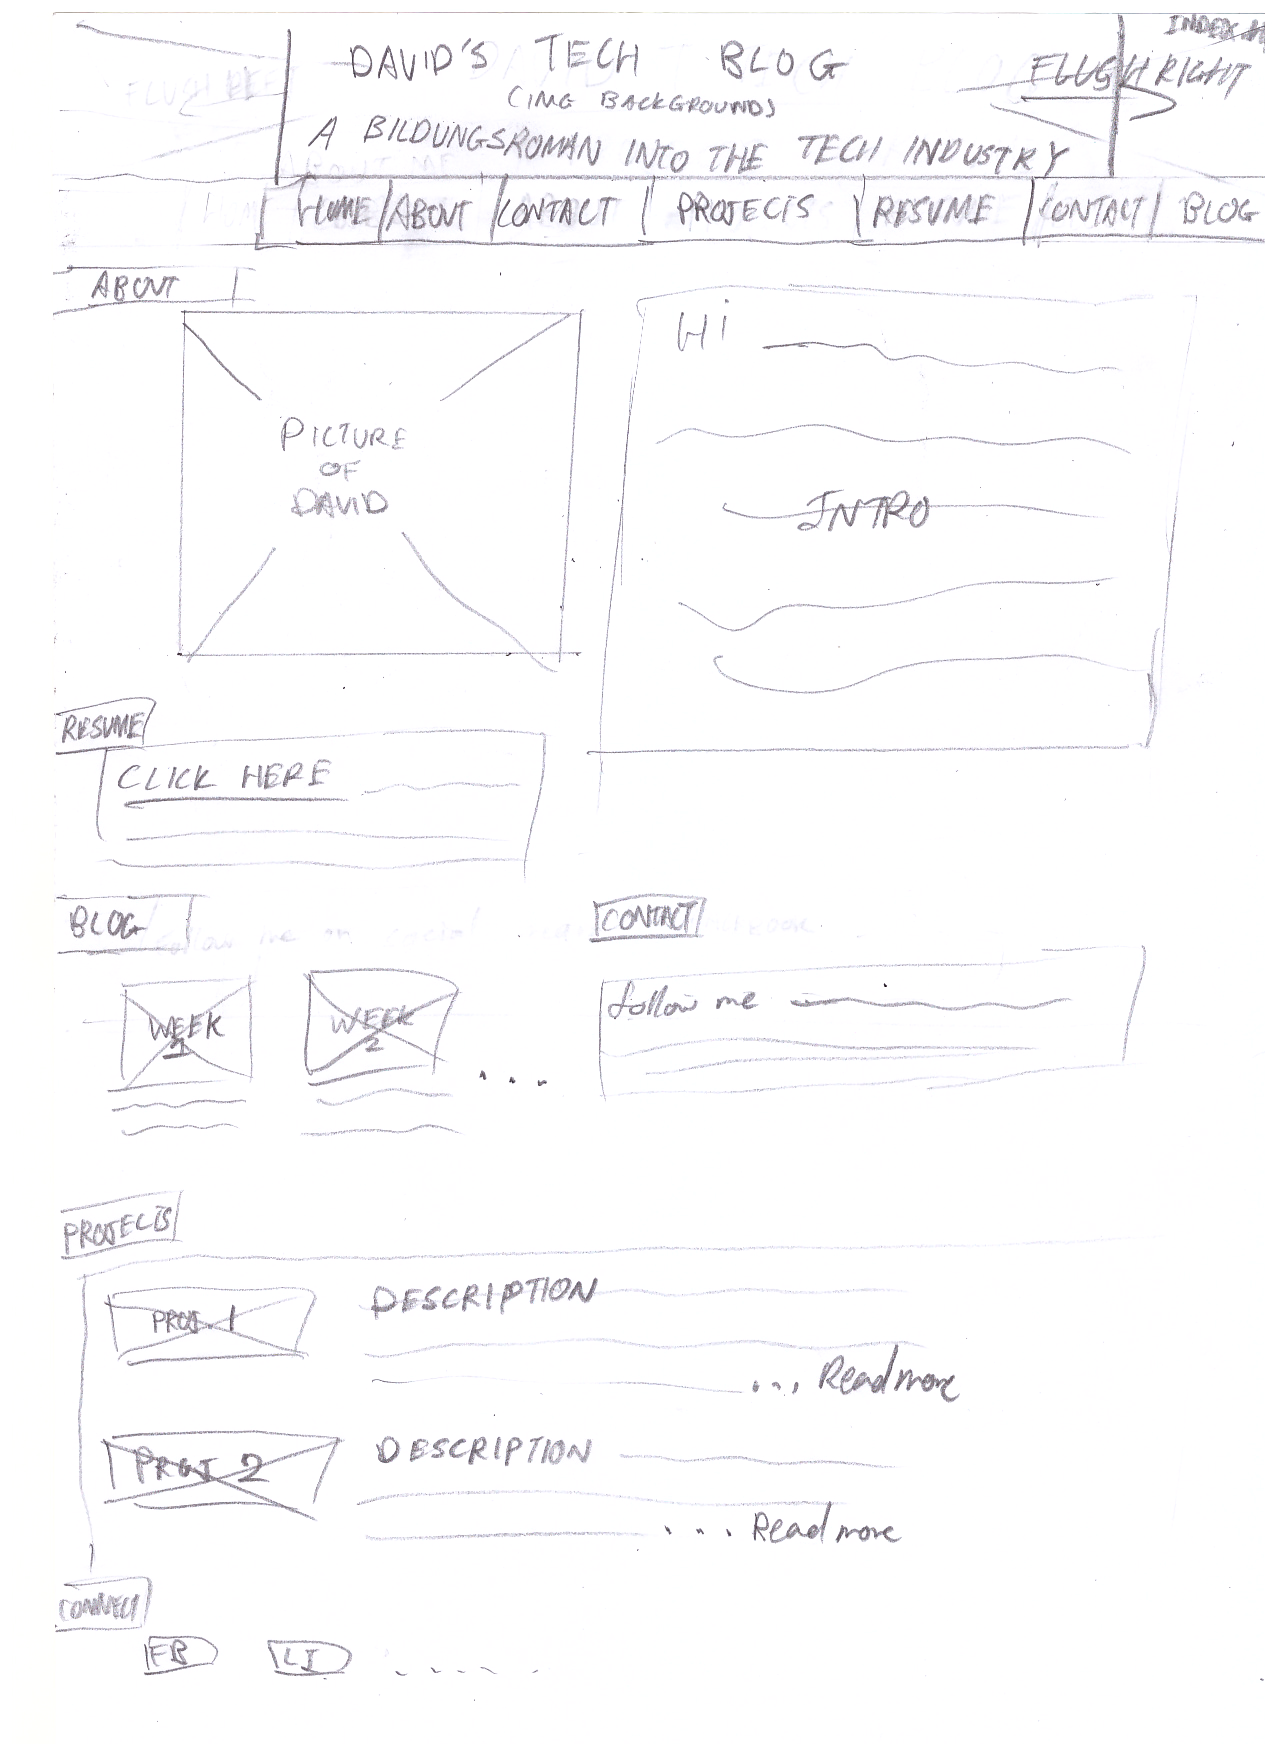 INDEX
DAVID'S TECH BLOG
FLUSH RIGHT
(IMG BACKGROUNDS)
A BILDUNGSROMAN INTO THE TECH INDUSTRY
HOME ABOUT CONTACT PROJECTS RESUME CONTACT BLOG
ABOUT
Hi
PICTURE
OF
DAVID
INTRO
RESUME
CLICK HERE
BLOG
CONTACT
WEEK
1
WEEK
2
...
follow me
PROJECTS
PROJ. 1
DESCRIPTION
... Read more
PROJ 2
DESCRIPTION
.... Read more
CONNECT
FB LI ......